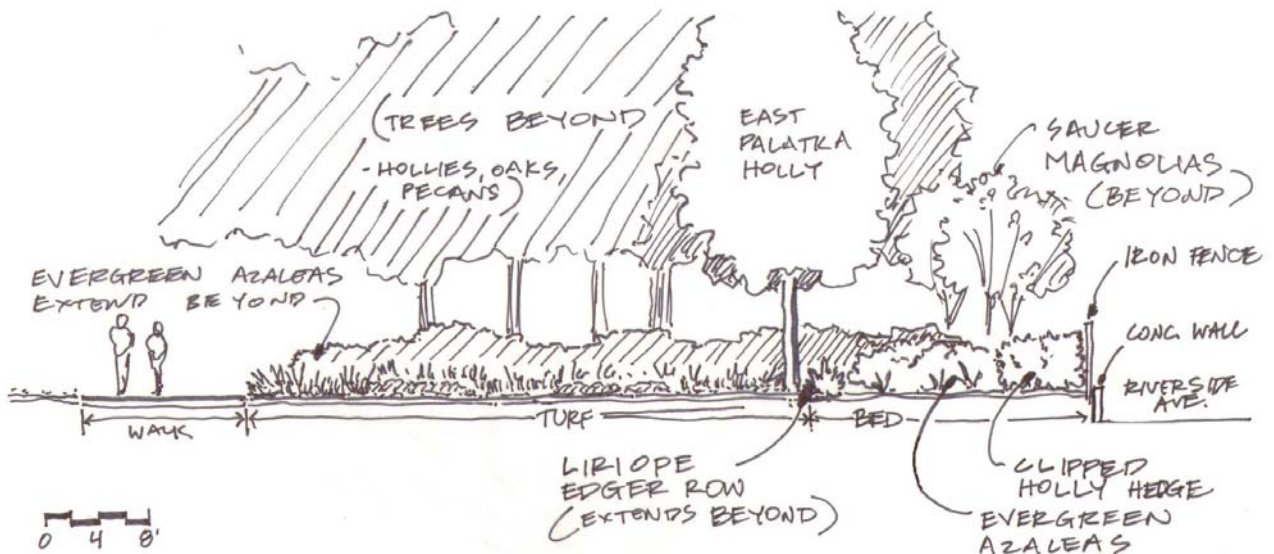 (TREES BEYOND
- HOLLIES, OAKS,
PECANS)
EAST
PALATKA
HOLLY
SAUCER
MAGNOLIAS
(BEYOND)
EVERGREEN AZALEAS
EXTEND BEYOND
IRON FENCE
CONC. WALL
RIVERSIDE
AVE.
WALK
TURF
BED
LIRIOPE
EDGER ROW
(EXTENDS BEYOND)
CLIPPED
HOLLY HEDGE
EVERGREEN
AZALEAS
0 4 8'